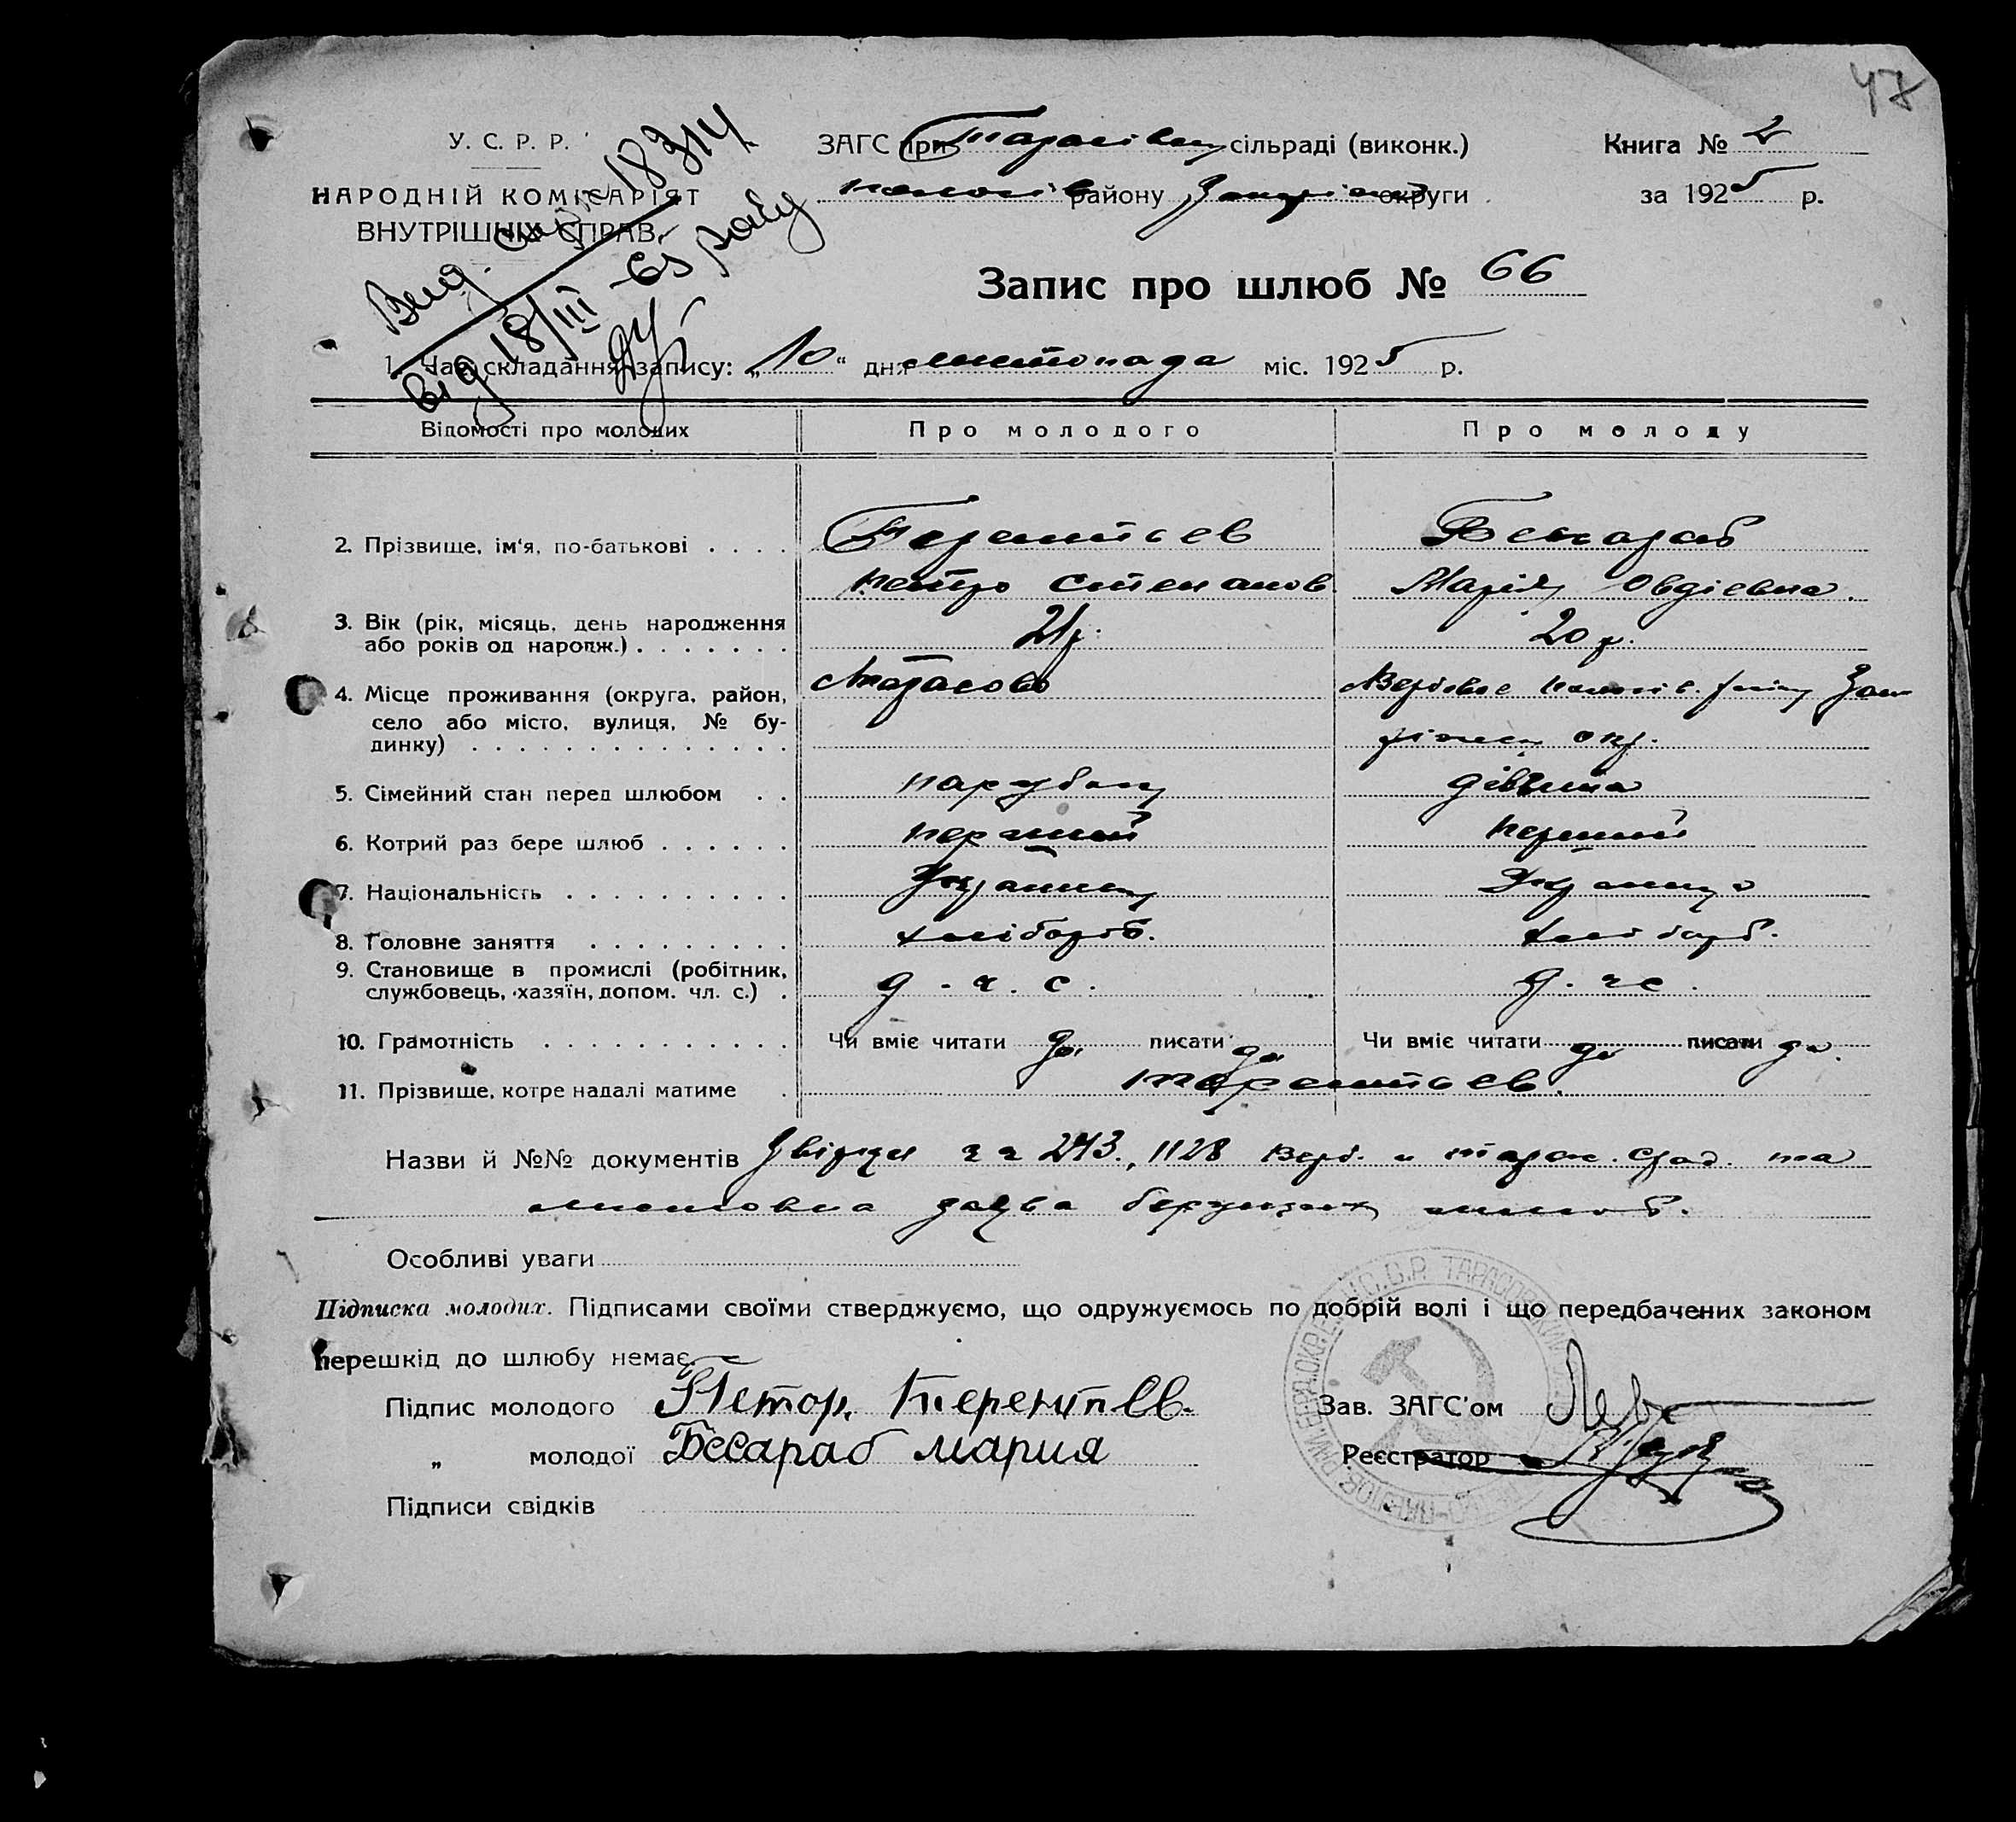 47
У. С. Р. Р.
НАРОДНІЙ КОМІСАРІЯТ
ВНУТРІШНІХ СПРАВ.
18314
від 18/III - 65 року
ЗАГС при Тарасівск сільраді (виконк.)
району округи
Книга № 2
за 1925 р.
Запис про шлюб № 66
1. Час складання запису: „10“ дня листопада міс. 1925 р.
Відомості про молодих Про молодого Про молоду
2. Прізвище, ім'я, по-батькові . . . . Терентьев Бессараб
Петро Степанов Марія Овдієвна.
3. Вік (рік, місяць, день народження
або років од народж.) . . . . . . . 21 р. 20 р.
4. Місце проживання (округа, район, Тарасово Вербове
село або місто, вулиця, № бу-
динку) . . . . . . . . . . . . . . окр.
5. Сімейний стан перед шлюбом . . парубок дівчина
6. Котрий раз бере шлюб . . . . . . перший перший
7. Національність . . . . . . . . . .
8. Головне заняття . . . . . . . . . хлібороб. хлібороб.
9. Становище в промислі (робітник,
службовець, хазяїн, допом. чл. с.) . д. ч. с. д. ч с.
10. Грамотність . . . . . . . . . . . Чи вміє читати да писати да Чи вміє читати да писати да.
11. Прізвище, котре надалі матиме . Терентьев.
Назви й №№ документів Звірки за 243., 1128 Верб. и Тарас. срад. та
заява беручих шлюб.
Особливі уваги
Підписка молодих. Підписами своїми стверджуємо, що одружуємось по добрій волі і що передбачених законом
перешкід до шлюбу немає.
Підпис молодого Петор. Терентпев.
„ молодої Бесараб мария
Підписи свідків
Зав. ЗАГС'ом
Реєстратор